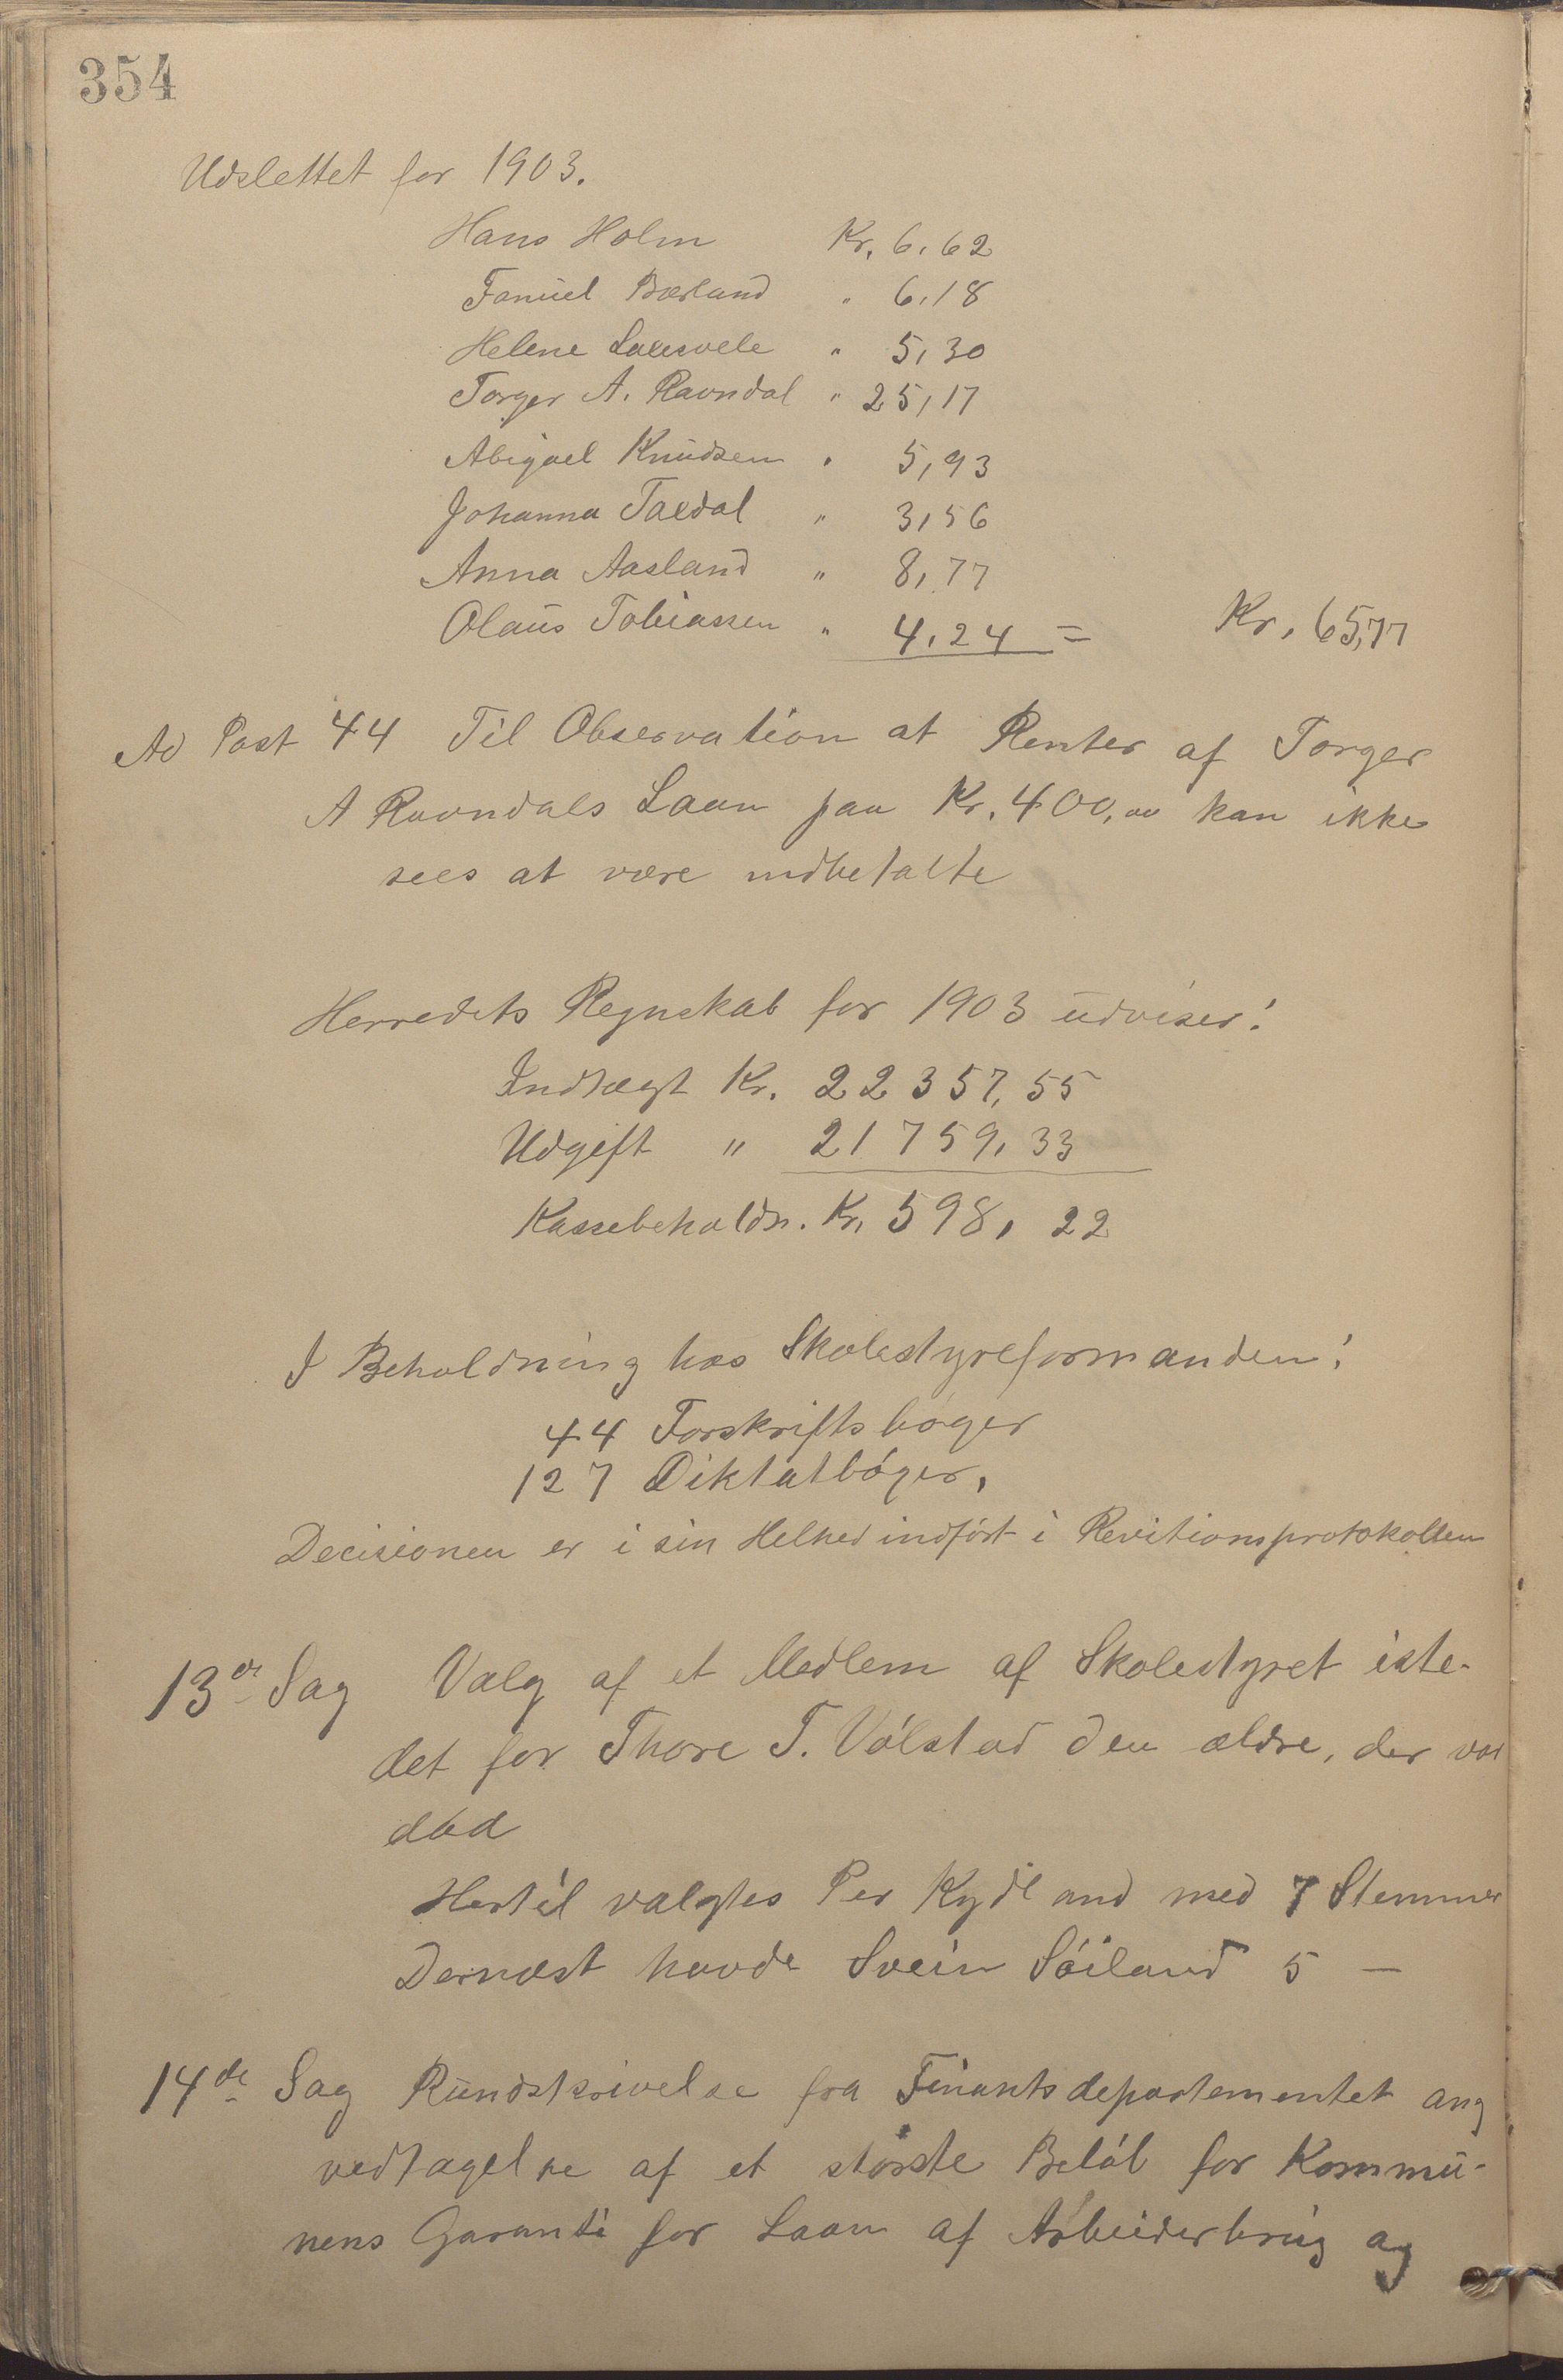 354
Udslettet for 1903.
Hans Holm Kr. 6,62
Fanuel Bærland " 6,18
Helene " 5,30
Torger A. Ravndal " 25,17
Abigael Knudsen " 5,93
Johanna Taxdal " 3,56
Anna Aasland " 8,77
Olaus Tobiassen " 4,24 = Kr. 65,77
Ad Post 44 Til Observation at Renter af Torger
A Ravndals Laan paa Kr. 400,00 kan ikke
sees at være indbetalte
Herredets Regnskab for 1903 udviser:
Indtægt Kr. 22357,55
Udgift " 21759,33
Kassebeholdn. Kr. 598,22
I Beholdning hos Skolestyreformanden:
44 Forskriftsbøger
127 Diktatbøger,
Decisionen er i sin Helhed indført i Revitionsprotokollen
13de Sag Valg af et Medlem af Skolestyret iste-
det for Thore T. Vølstad den ældre, der var
død
Hertil valgtes Per Kydland med 7 Stemmer
Dernæst havde Svein Søiland 5 —
14de Sag Rundskrivelse fra Finantsdepartementet ang
vedtagelse af et største Beløb for Kommu-
nens Garanti for Laan af Arbeiderbrug og